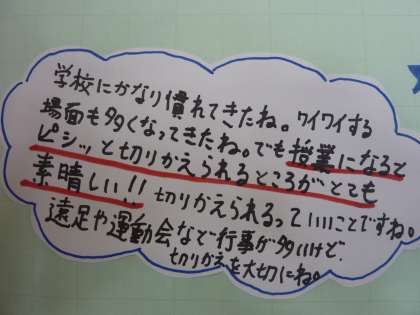 学校にかなり慣れてきたね。ワイワイする
場面も多くなってきたね。でも授業になると
ピシッと切りかえられるところがとても
素晴しい!! 切りかえられるっていいことですね。
遠足や運動会など行事が多いけど、
切りかえを大切にね。